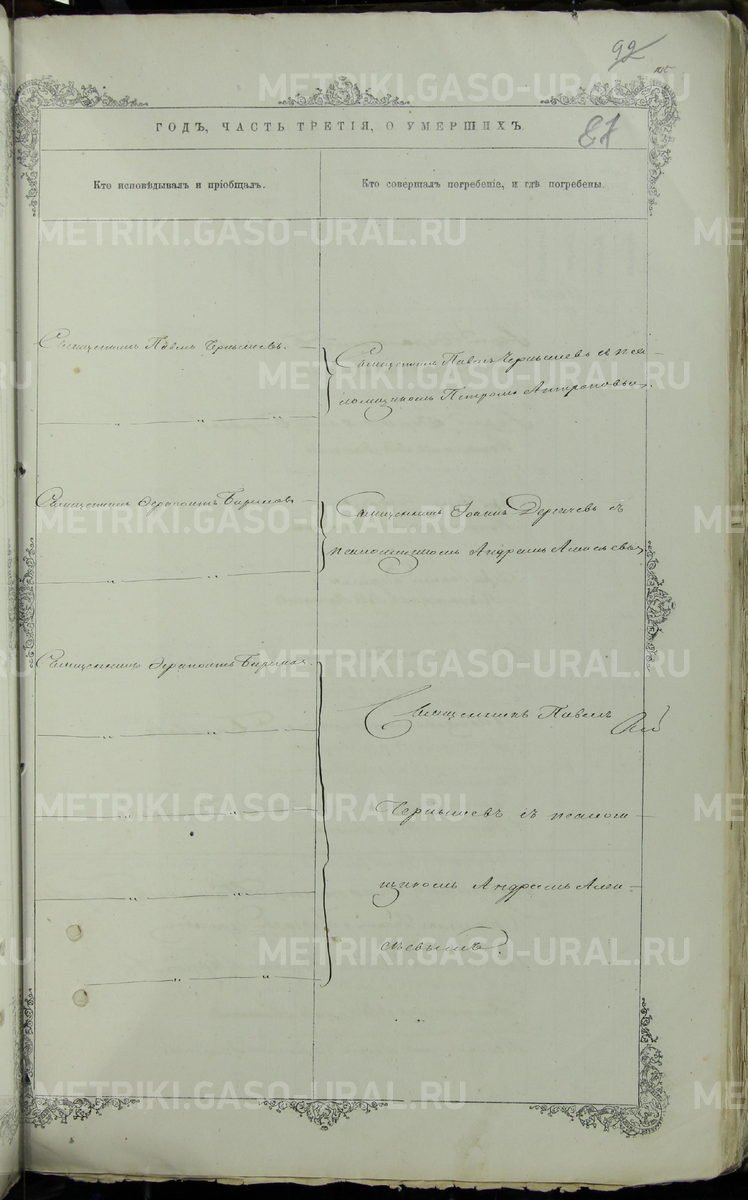 92
87
ГОДЪ, ЧАСТЬ ТРЕТІЯ, О УМЕРШИХЪ
Кто исповѣдывалъ и пріобщалъ.
Кто совершалъ погребеніе, и гдѣ погребены.
Священникъ Павелъ Чернышевъ.
Священникъ Павелъ Чернышевъ съ пса-
ломщикомъ Петромъ
Священникъ
Священникъ Іоаннъ Дерябевъ съ
псаломщикомъ Андреемъ Алексѣевы
Священникъ
Священникъ Павелъ
Чернышевъ съ псалом
щикомъ Андреемъ Алек-
сѣевымъ.
METRIKI.GASO-URAL.RU